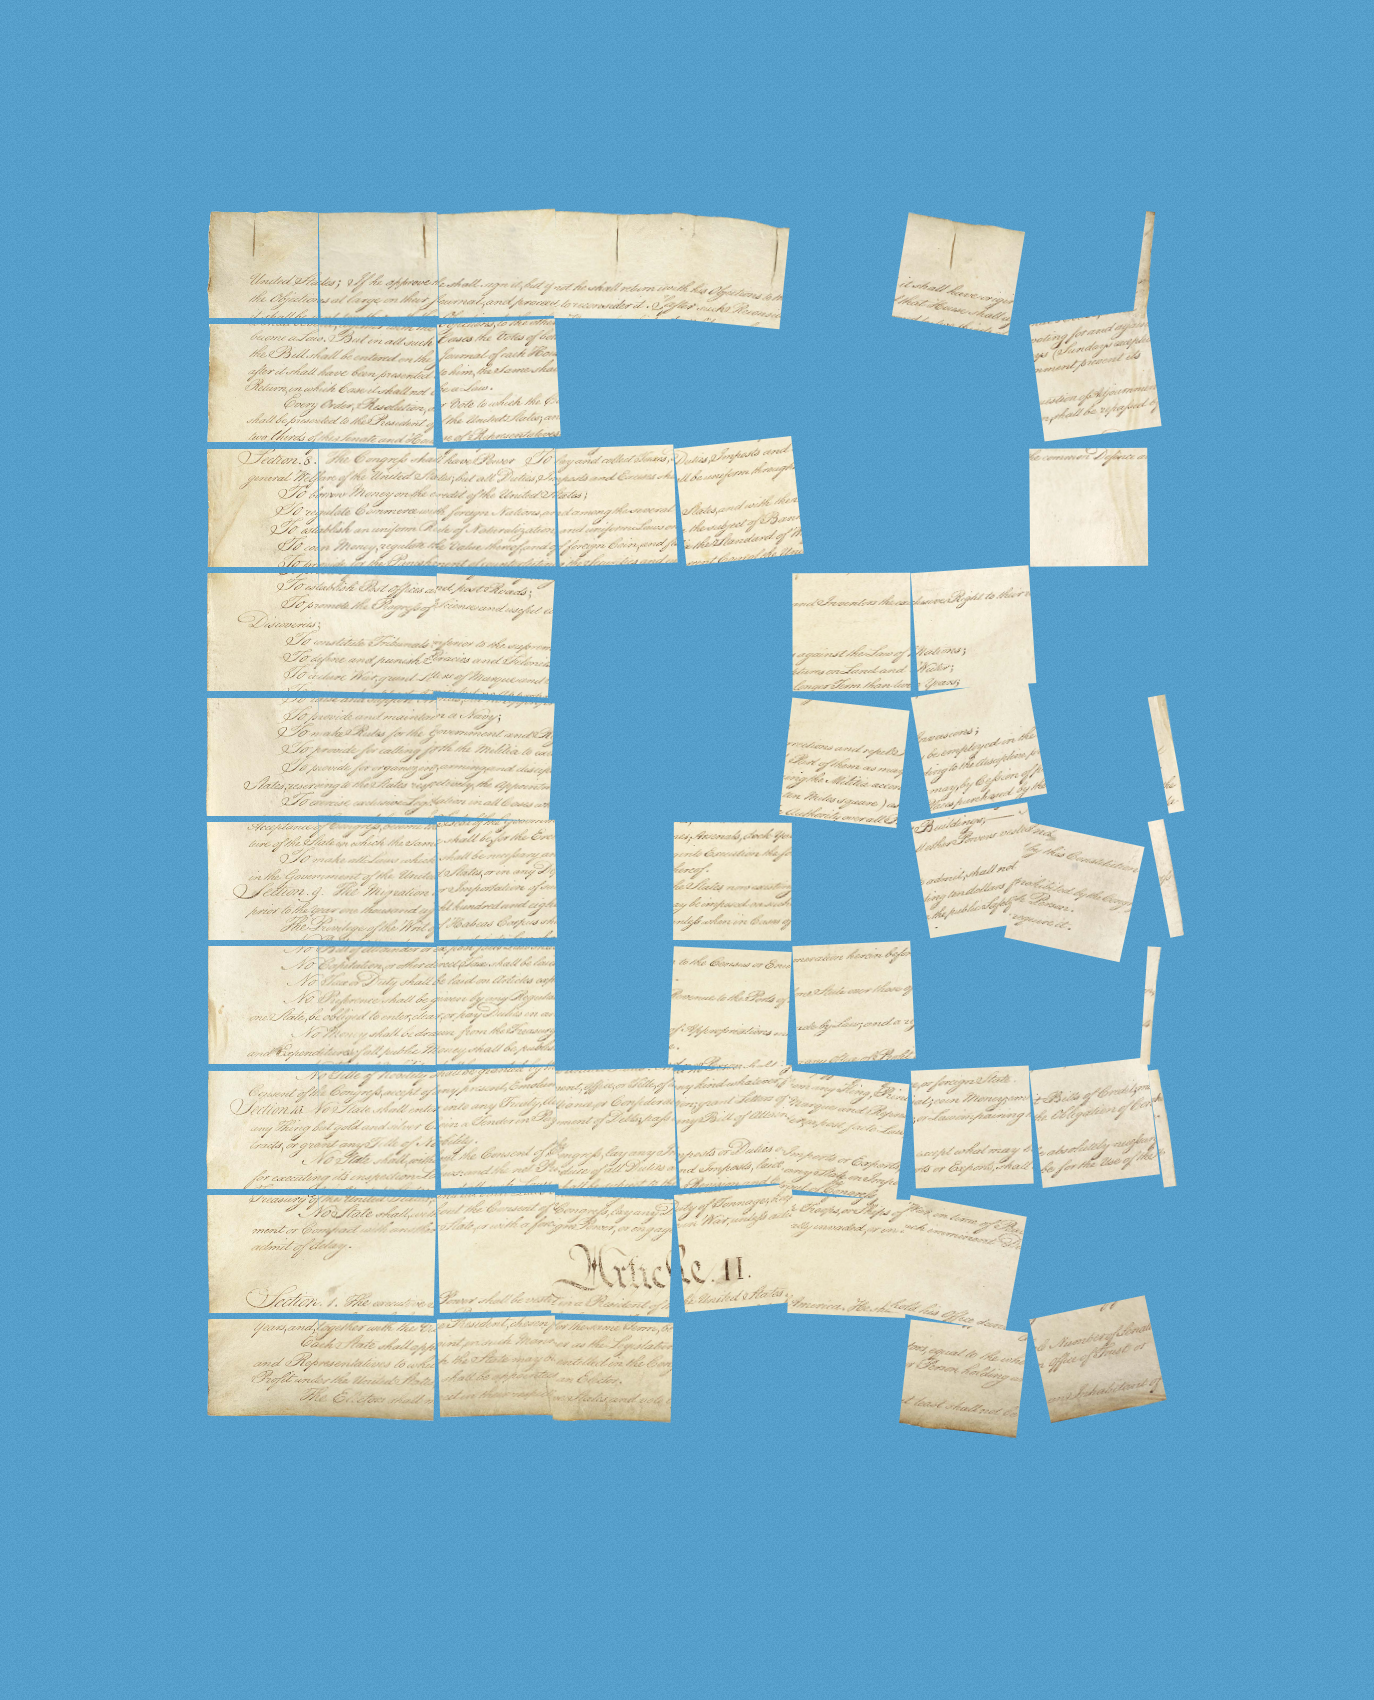 United States; If he approve he shall sign it, but if not he shall return it with his Objections to th it shall have origin
the Objections at large on their Journal, and proceed to reconsider it. If after such Reconsid that House shall
become a Law. But in all such Cases the Votes of bot voting for and again
the Bill shall be entered on the Journal of each Hou ys (Sundays excepte
after it shall have been presented to him, the Same shal nment prevent its
Return, in which Case it shall not be a Law.
Every Order, Resolution, or Vote to which the Co estion of Adjournmen
shall be presented to the President of the United States; an n, shall be repassed by
two thirds of the Senate and House of Representatives
Section. 8. The Congress shall have Power To lay and collect Taxes, Duties, Imposts and he common Defence a
general Welfare of the United States; but all Duties, Imposts and Excises shall be uniform through
To borrow Money on the credit of the United States;
To regulate Commerce with foreign Nations, and among the several States, and with the
To establish an uniform Rule of Naturalization, and uniform Laws on the subject of Ban
To coin Money, regulate the Value thereof, and of foreign Coin, and fix the Standard of W
To provide for the Punishment of counterfeiting the Securities and
To establish Post Offices and post Roads;
To promote the Progress of Science and useful and Inventors the exclusive Right to their
Discoveries;
To constitute Tribunals inferior to the suprem
To define and punish Piracies and Felonies against the Law of Nations;
To declare War, grant Letters of Marque and ptures on Land and Water;
To raise and support Armies, but no Approp longer Term than two Years;
To provide and maintain a Navy;
To make Rules for the Government and
To provide for calling forth the Militia to ex rrections and repel Invasions;
To provide for organizing, arming, and discip Part of them as may be employed in the
States, reserving to the States respectively, the Appointm ing the Militia accor ding to the discipline
To exercise exclusive Legislation in all Cases ten Miles square) as may, by Cession of the
Acceptance of Congress, become the Seat of the Government Authority over all Places purchased by the
ture of the State in which the Same shall be, for the Erec s, Arsenals, dock-Ya Buildings;—
To make all Laws which shall be necessary an ying into Execution the fo all other Powers vested by this Constitution
in the Government of the United States, or in any D hereof.
Section. 9. The Migration or Importation of su he States now existing admit, shall not prohibited by the Congre
prior to the Year one thousand eight hundred and eight y be imposed on such ing ten dollars for each Person.
The Privilege of the Writ of Habeas Corpus sh unless when in Cases of the public Safety may require it.
No Bill of Attainder or ex post facto Law sha
No Capitation, or other direct, Tax shall be laid n to the Census or Enumeration herein before
No Tax or Duty shall be laid on Articles exp
No Preference shall be given by any Regulat Revenue to the Ports of one State over those of
one State, be obliged to enter, clear, or pay Duties in an
No Money shall be drawn from the Treasury of Appropriations made by Law; and a re
and Expenditures of all public Money shall be publis
No Title of Nobility shall be granted by
Consent of the Congress, accept of any present, Emolument, Office, or Title, of any kind whatever, from any King, Prince, or foreign State.
Section. 10. No State shall enter into any Treaty, Alliance, or Confederation; grant Letters of Marque and Reprisal; coin Money; emit Bills of Credit;
any Thing but gold and silver Coin a Tender in Payment of Debts; pass any Bill of Attainder, ex post facto Law, or Law impairing the Obligation of Con
tracts, or grant any Title of Nobility.
No State shall, without the Consent of the Congress, lay any Imposts or Duties on Imports or Exports, except what may be absolutely necessary
for executing its inspection Laws: and the net Produce of all Duties and Imposts, laid by any State on Imports or Exports, shall be for the Use of the
Treasury of the United States;
No State shall, without the Consent of Congress, lay any Duty of Tonnage, keep Troops, or Ships of War in time of
ment or Compact with another State, or with a foreign Power, or engage in War, unless actually invaded, or in such imminent
admit of delay.
Article. II.
Section. 1. The executive Power shall be vested in a President of the United States of America. He shall hold his Office during
Years, and, together with the Vice President, chosen for the same Term, be
Each State shall appoint, in such Manner as the Legislature tors, equal to the whole Number of Senat
and Representatives to which the State may be entitled in the Cong or Person holding an Office of Trust or
Profit under the United States, shall be appointed an Elector.
The Electors shall meet in their respective States, and vote b at least shall not be an Inhabitant of